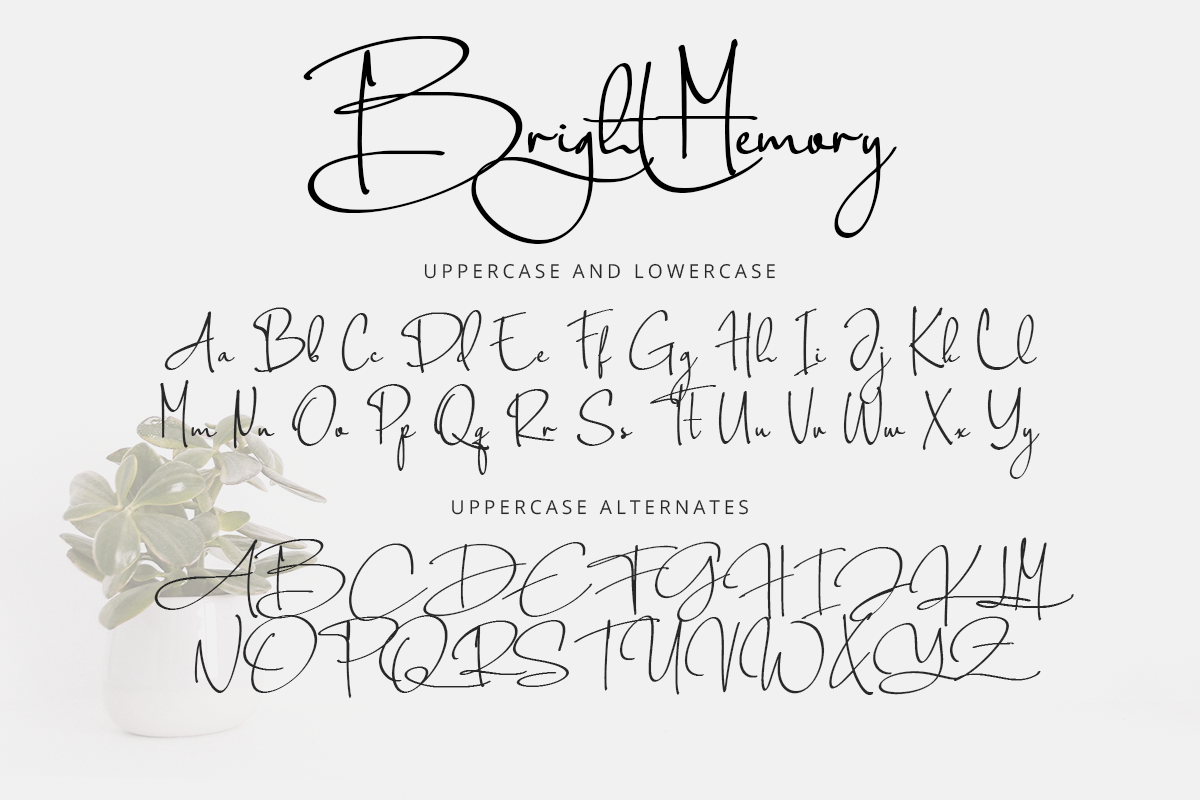 Bright Memory
UPPERCASE AND LOWERCASE
Aa Bb Cc Dd Ee Ff Gg Hh Ii Jj Kk Ll
Mm Nn Oo Pp Qq Rr Ss Tt Uu Vv Ww Xx Yy
UPPERCASE ALTERNATES
A B C D E F G H I J K L M
N O P Q R S T U V W X Y Z